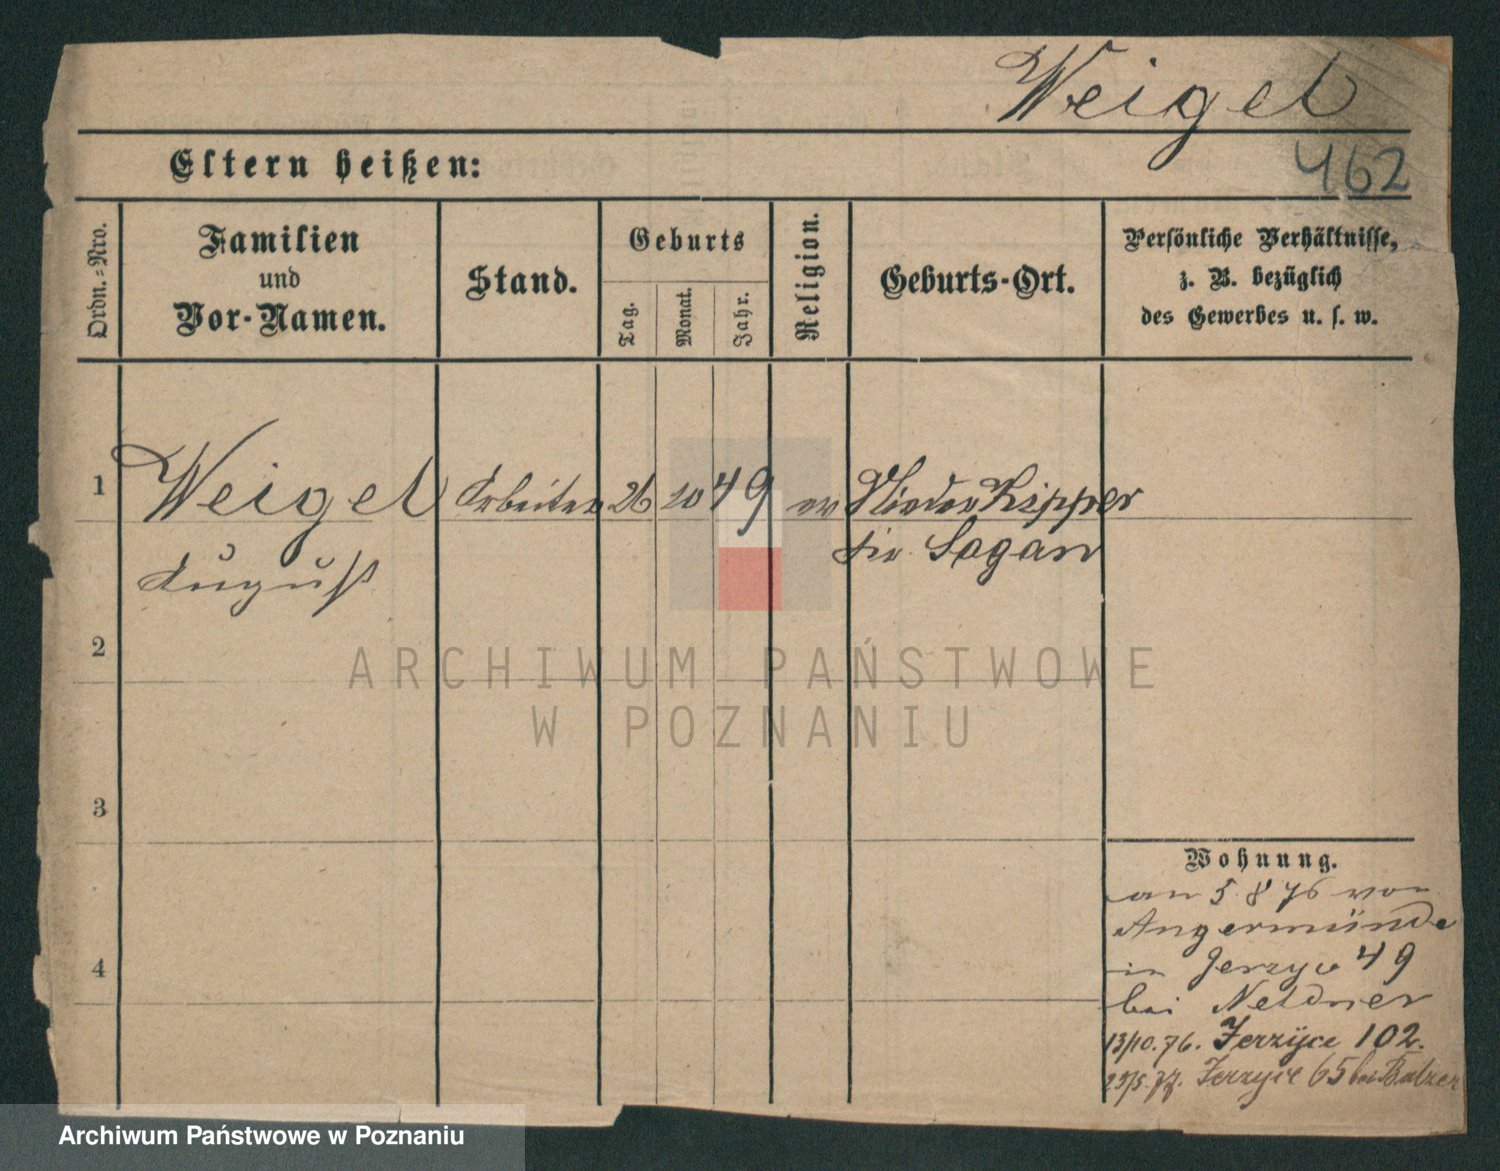 Weigel
462
Eltern heißen:
Ordn.=Nro.
Familien
und
Vor-Namen.
Stand.
Geburts
Tag.
Monat.
Jahr.
Religion.
Geburts-Ort.
Persönliche Verhältnisse,
z. B. bezüglich
des Gewerbes u. s. w.
1
Weigel Arbeiter 26 10 49 ev Nieder Küpper
Kr. Sagan
August
2
3
4
ARCHIWUM PAŃSTWOWE
W POZNANIU
Wohnung.
am 5 8 76 von
Angermünde
in Jerzyce 49
bei Neldner
13/10. 76. Jerzyce 102.
23/5. 77. Jerzyce 65 bei Balzer
Archiwum Państwowe w Poznaniu